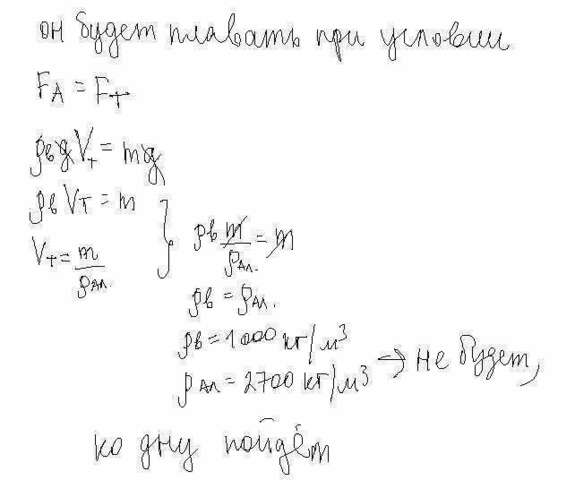 он будет плавать при условии
F_А = F_Т
ρ_в g V_т = mg
ρ_в V_т = m
V_т = m/ρ_Ал.
ρ_в m/ρ_Ал. = m
ρ_в = ρ_Ал.
ρ_в = 1000 кг/м³
ρ_Ал = 2700 кг/м³ → не будет,
ко дну пойдём